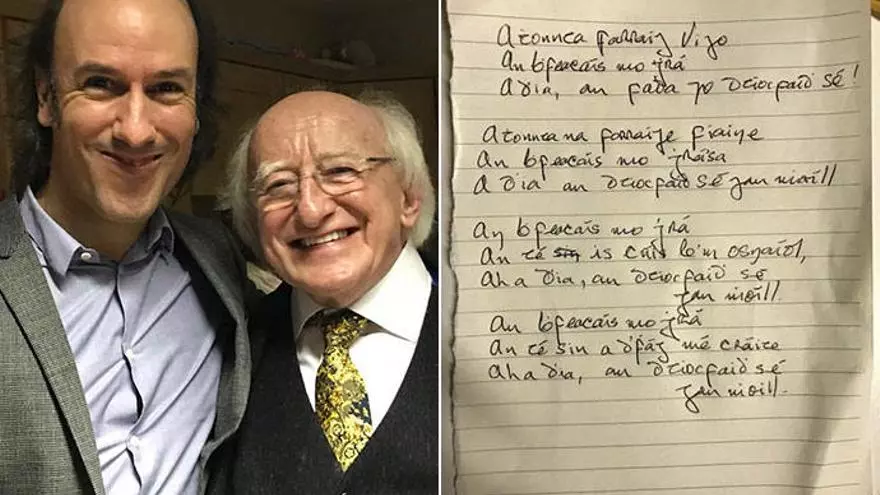 A tonnta farraig Vigo
An bfeacaís mo grá
A Dia, an fada go dtiocfaid sé!
A tonnta na farraige fiaine
An bfeacaís mo grása
A Dia an dtiocfaid sé gan moill
An bfeacaís mo grá
An té sin is cúis lem
Aha Dia, an dtiocfaid sé
gan moill.
An bfeacaís mo grá
An té sin a d'fág mé cráite
Aha Dia, an dtiocfaid sé
gan moill.